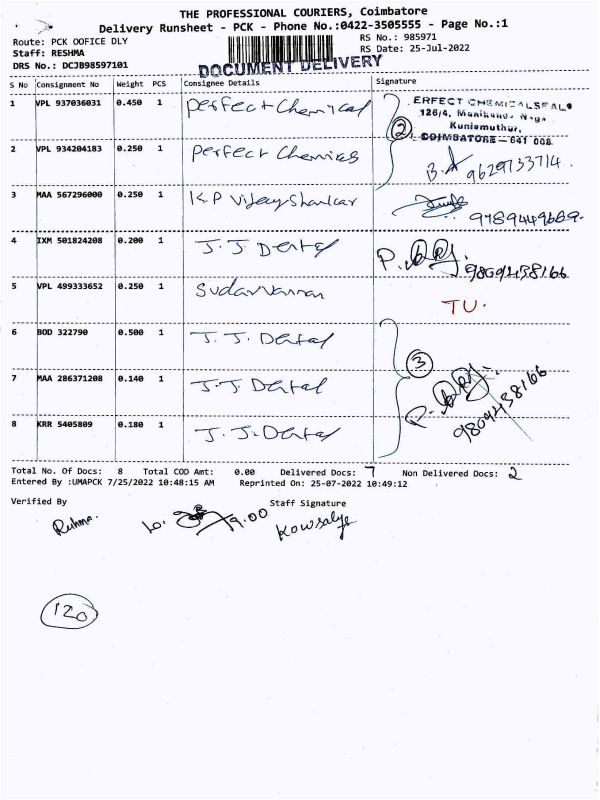 THE PROFESSIONAL COURIERS, Coimbatore
Delivery Runsheet - PCK - Phone No.:0422-3505555 - Page No.:1
Route: PCK OOFICE DLY RS No.: 985971
Staff: RESHMA RS Date: 25-Jul-2022
DRS No.: DCJB98597101
DOCUMENT DELIVERY
S No Consignment No Weight PCS Consignee Details Signature
1 VPL 937036031 0.450 1 Perfect Chemical
ERFECT CHEMICALSEALS
126/4,
Kuniamuthur,
COIMBATORE - 641 008.
2 VPL 934204183 0.250 1 Perfect Chemicals 2
9629733714.
3 MAA 567296000 0.250 1 K.P Vijayshankar
9789449669.
4 IXM 501824208 0.200 1 J.J Dental
9809438166
5 VPL 499333652 0.250 1
TU.
6 BOD 322790 0.500 1 J.J. Dental
3
7 MAA 286371208 0.140 1 J.J. Dental
9809438166
8 KRR 5405809 0.180 1 J.J. Dental
Total No. Of Docs: 8 Total COD Amt: 0.00 Delivered Docs: 7 Non Delivered Docs: 2
Entered By :UMAPCK 7/25/2022 10:48:15 AM Reprinted On: 25-07-2022 10:49:12
Verified By Staff Signature
9.00 Kowsalya
120